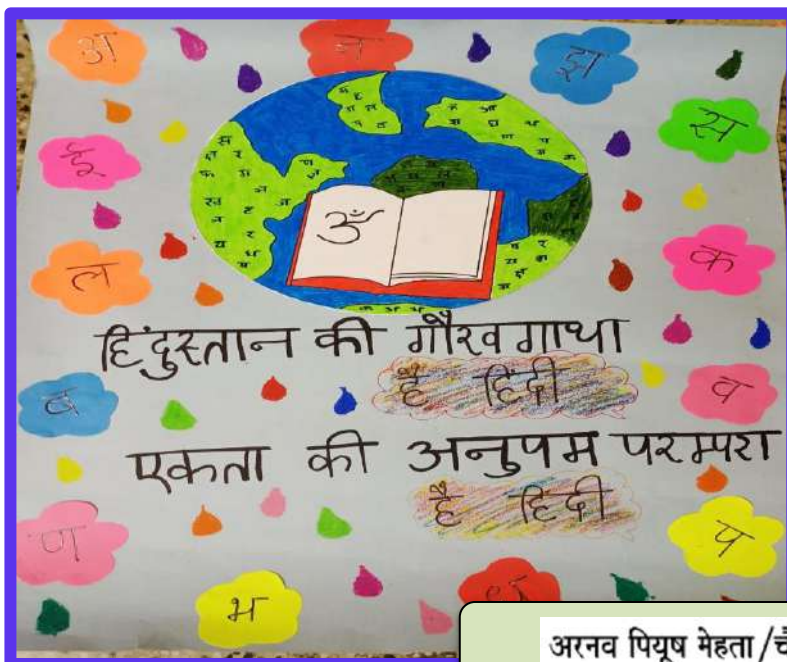 अ
न
झ
स
ई
ॐ
ल
क
हिंदुस्तान की गौरवगाथा
है हिंदी
ब
व
एकता की अनुपम परम्परा
है हिंदी
ण
प
भ
अरनव पियूष मेहता/